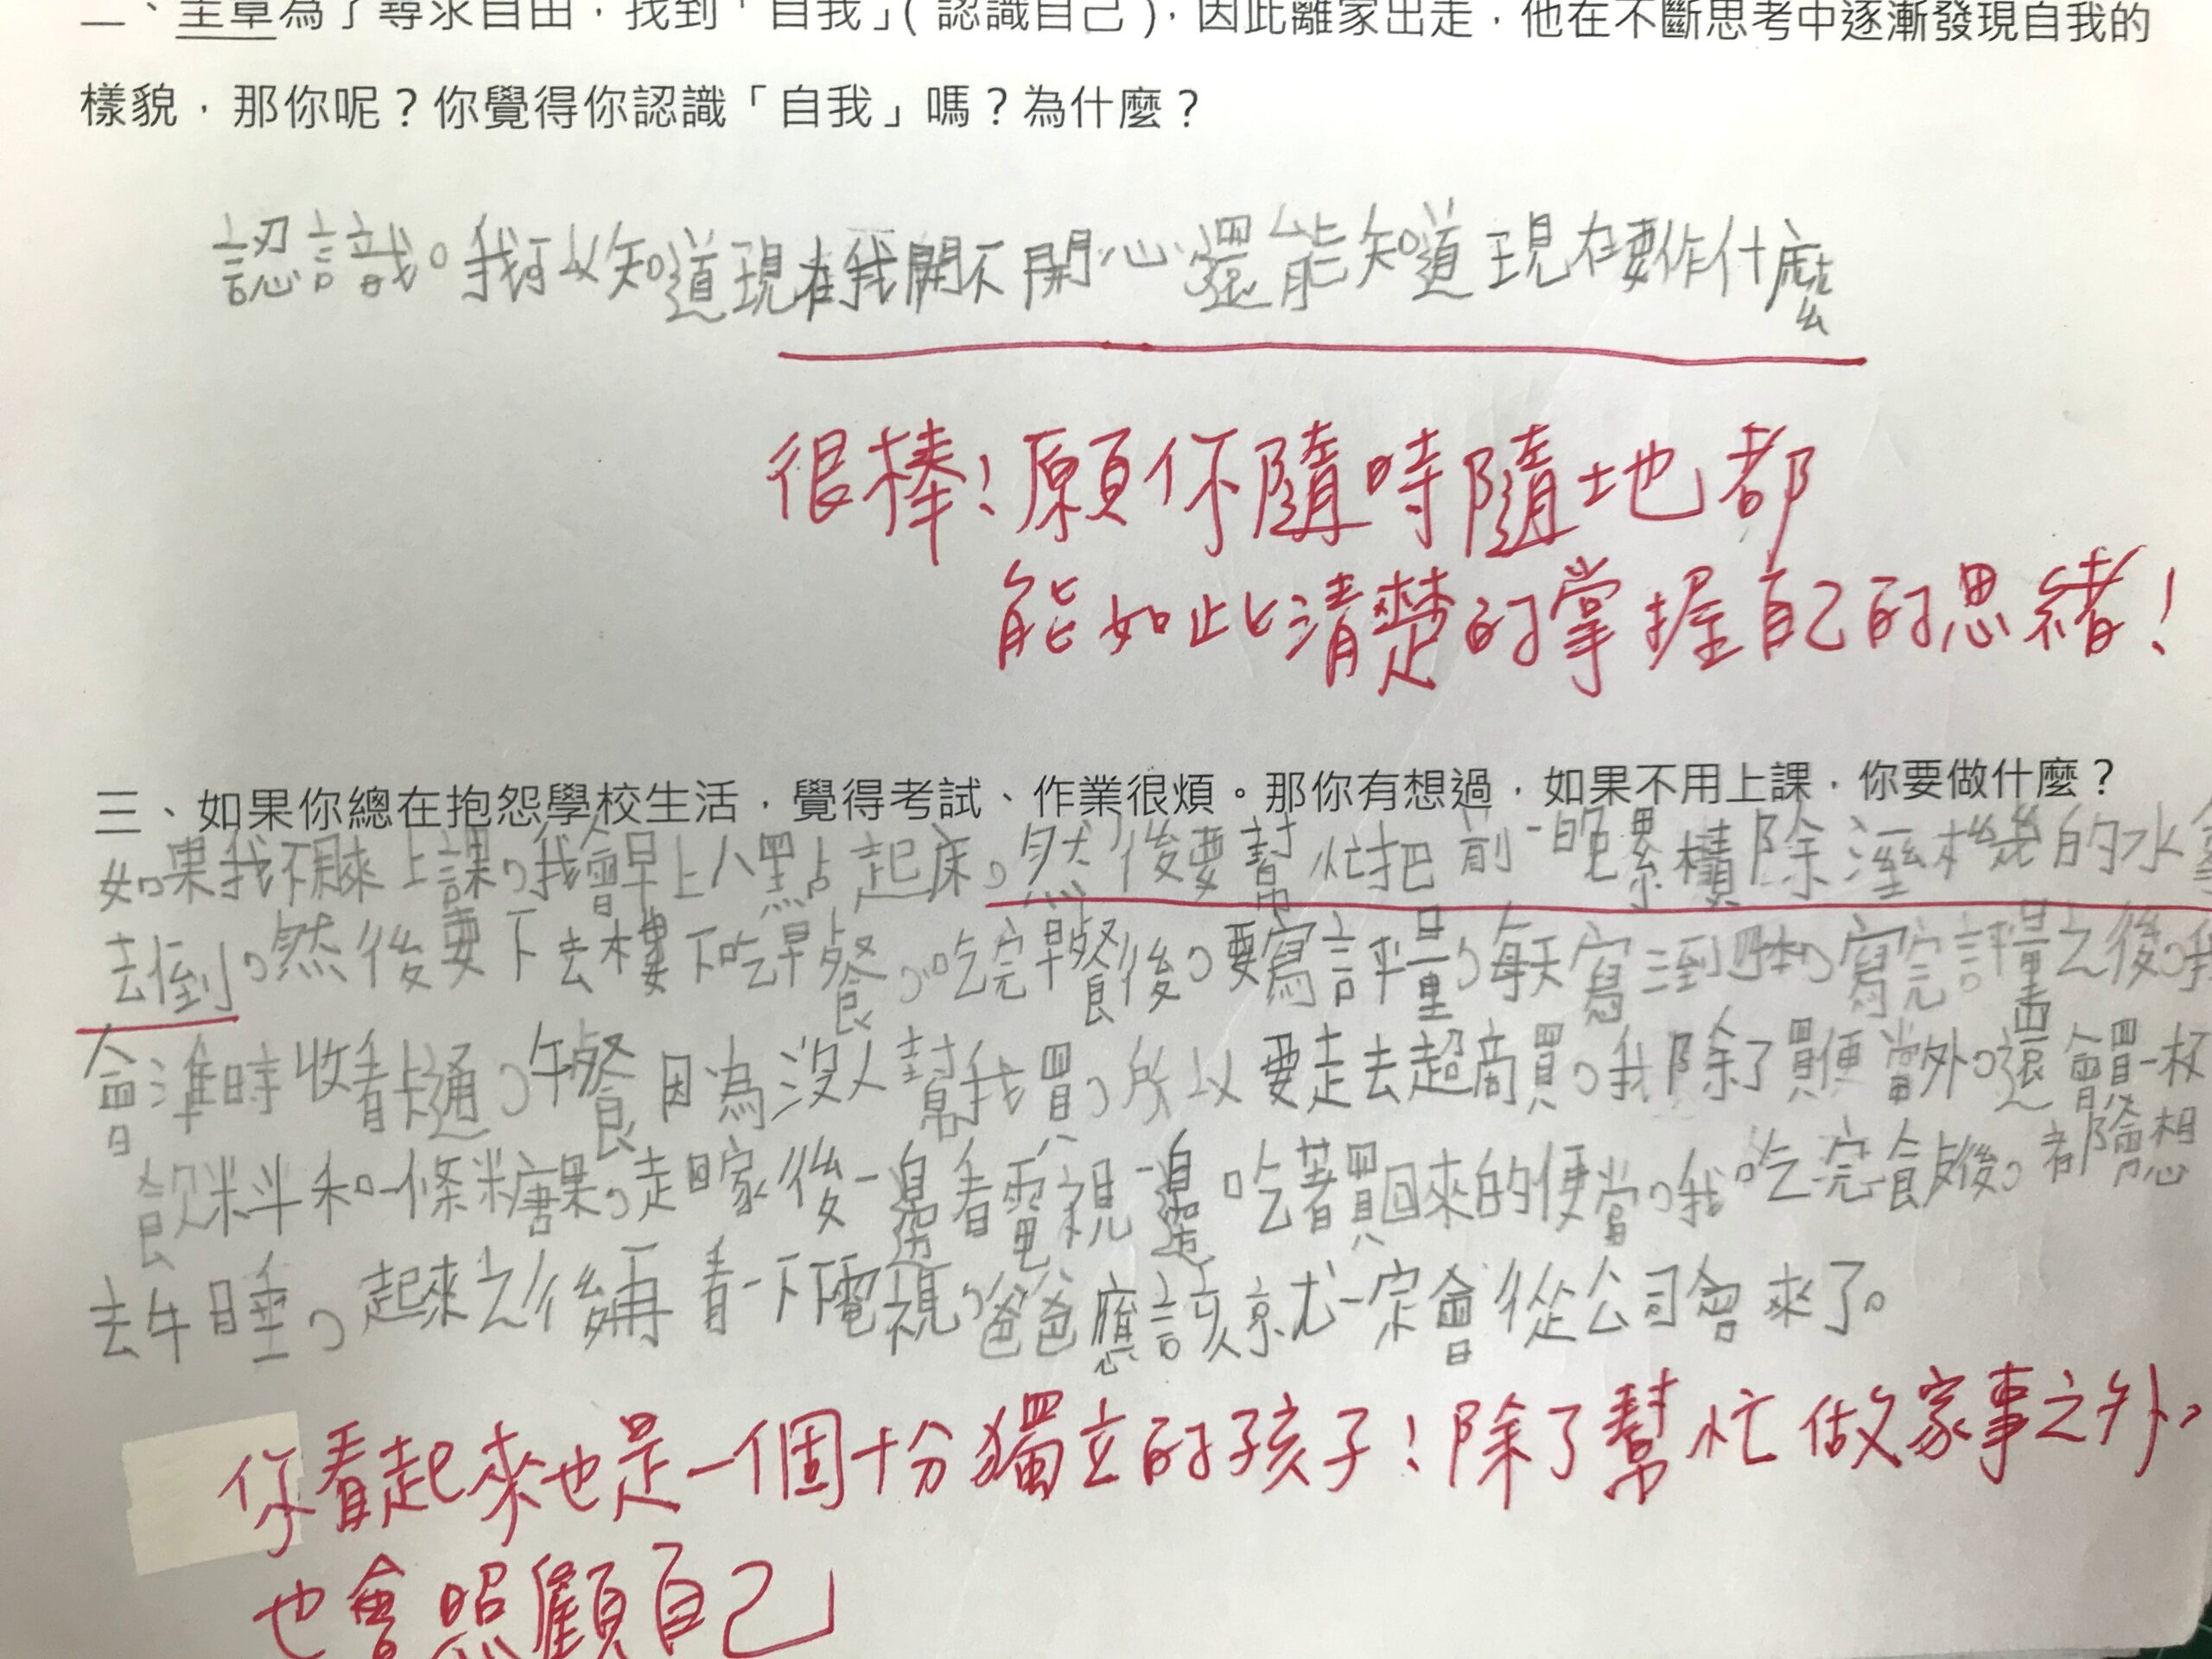 二、主章為了尋求自由，找到「自我」(認識自己)，因此離家出走，他在不斷思考中逐漸發現自我的
樣貌，那你呢？你覺得你認識「自我」嗎？為什麼？
認識。我可以知道現在我開不開心還能知道現在要作什麼
很棒！願你隨時隨地都
能如此清楚的掌握自己的思緒！
三、如果你總在抱怨學校生活，覺得考試、作業很煩。那你有想過，如果不用上課，你要做什麼？
如果我不用來上課。我會早上八點起床。然後要幫忙把前一晚累積除溼機的水
去倒。然後要下去樓下吃早餐。吃完早餐後。要寫評量。每天寫三到四本。寫完評量之後。我
會準時收看卡通。午餐因為沒人幫我買。所以要走去超商買。我除了買便當外。還會買一杯
飲料和一條糖果。走回家後一邊看電視一邊吃著買回來的便當。我吃完飯後。都會想
去午睡。起來之後再看一下電視。爸爸應該就一定會從公司會來了。
你看起來也是一個十分獨立的孩子！除了幫忙做家事之外，
也會照顧自己